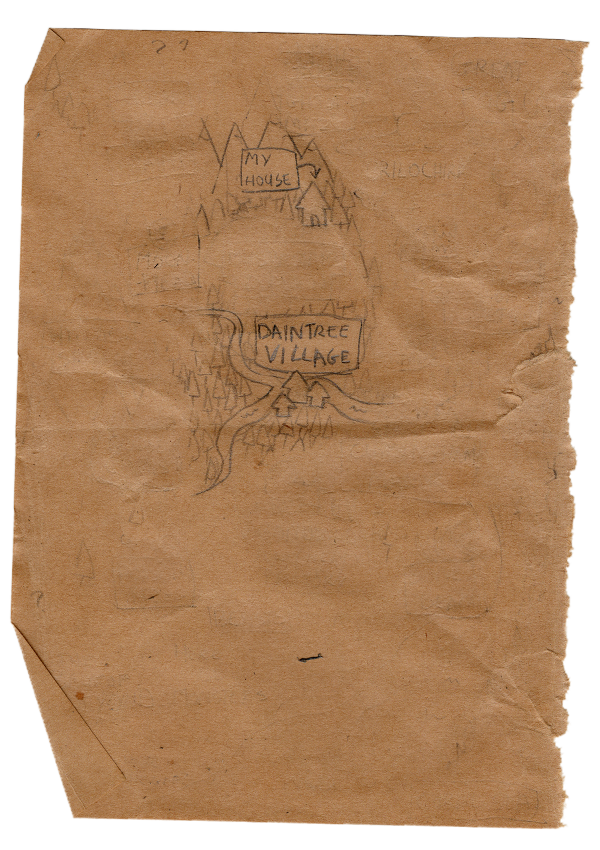 MY
HOUSE
DAINTREE
VILLAGE